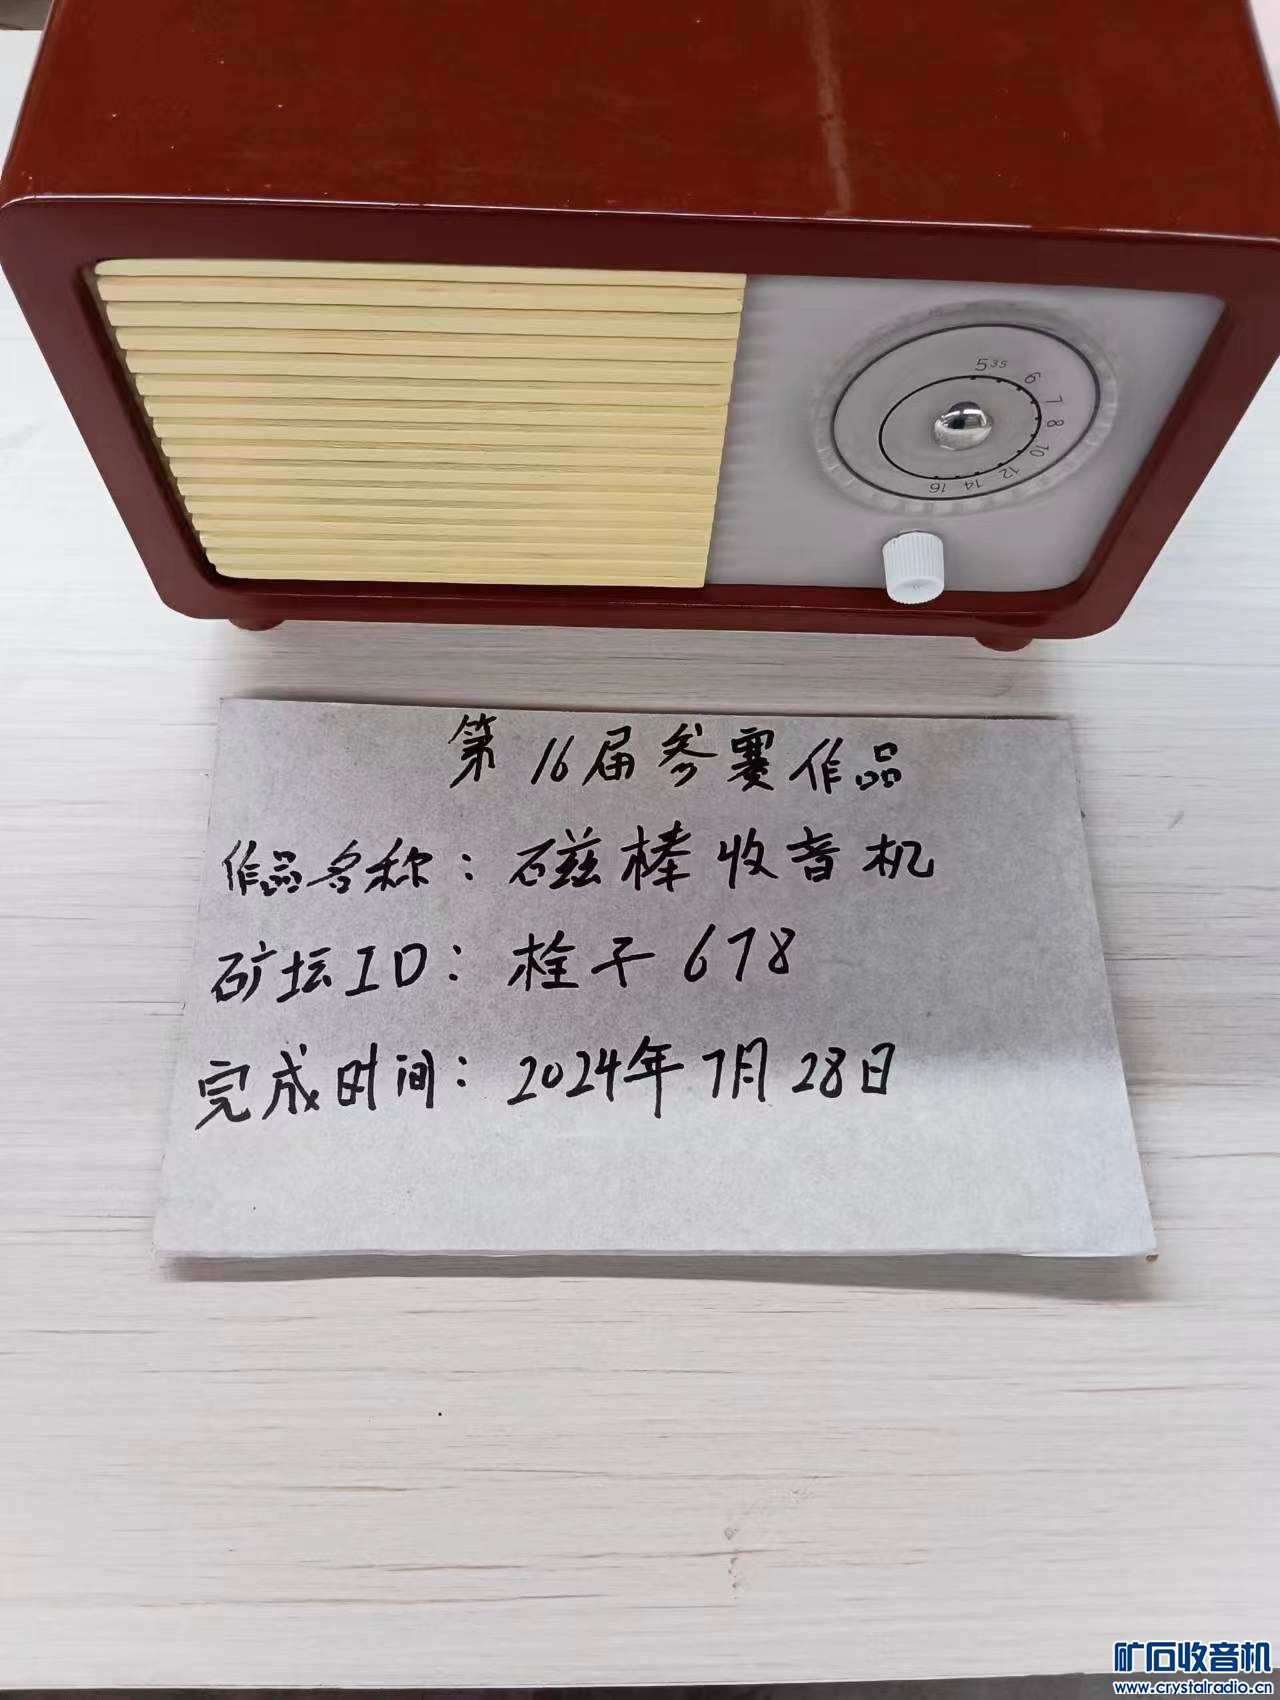 535 6 7 8 10 12 14 16
第16届参赛作品
作品名称：磁棒收音机
矿坛ID：栓子678
完成时间：2024年7月28日
矿石收音机
www.crystalradio.cn